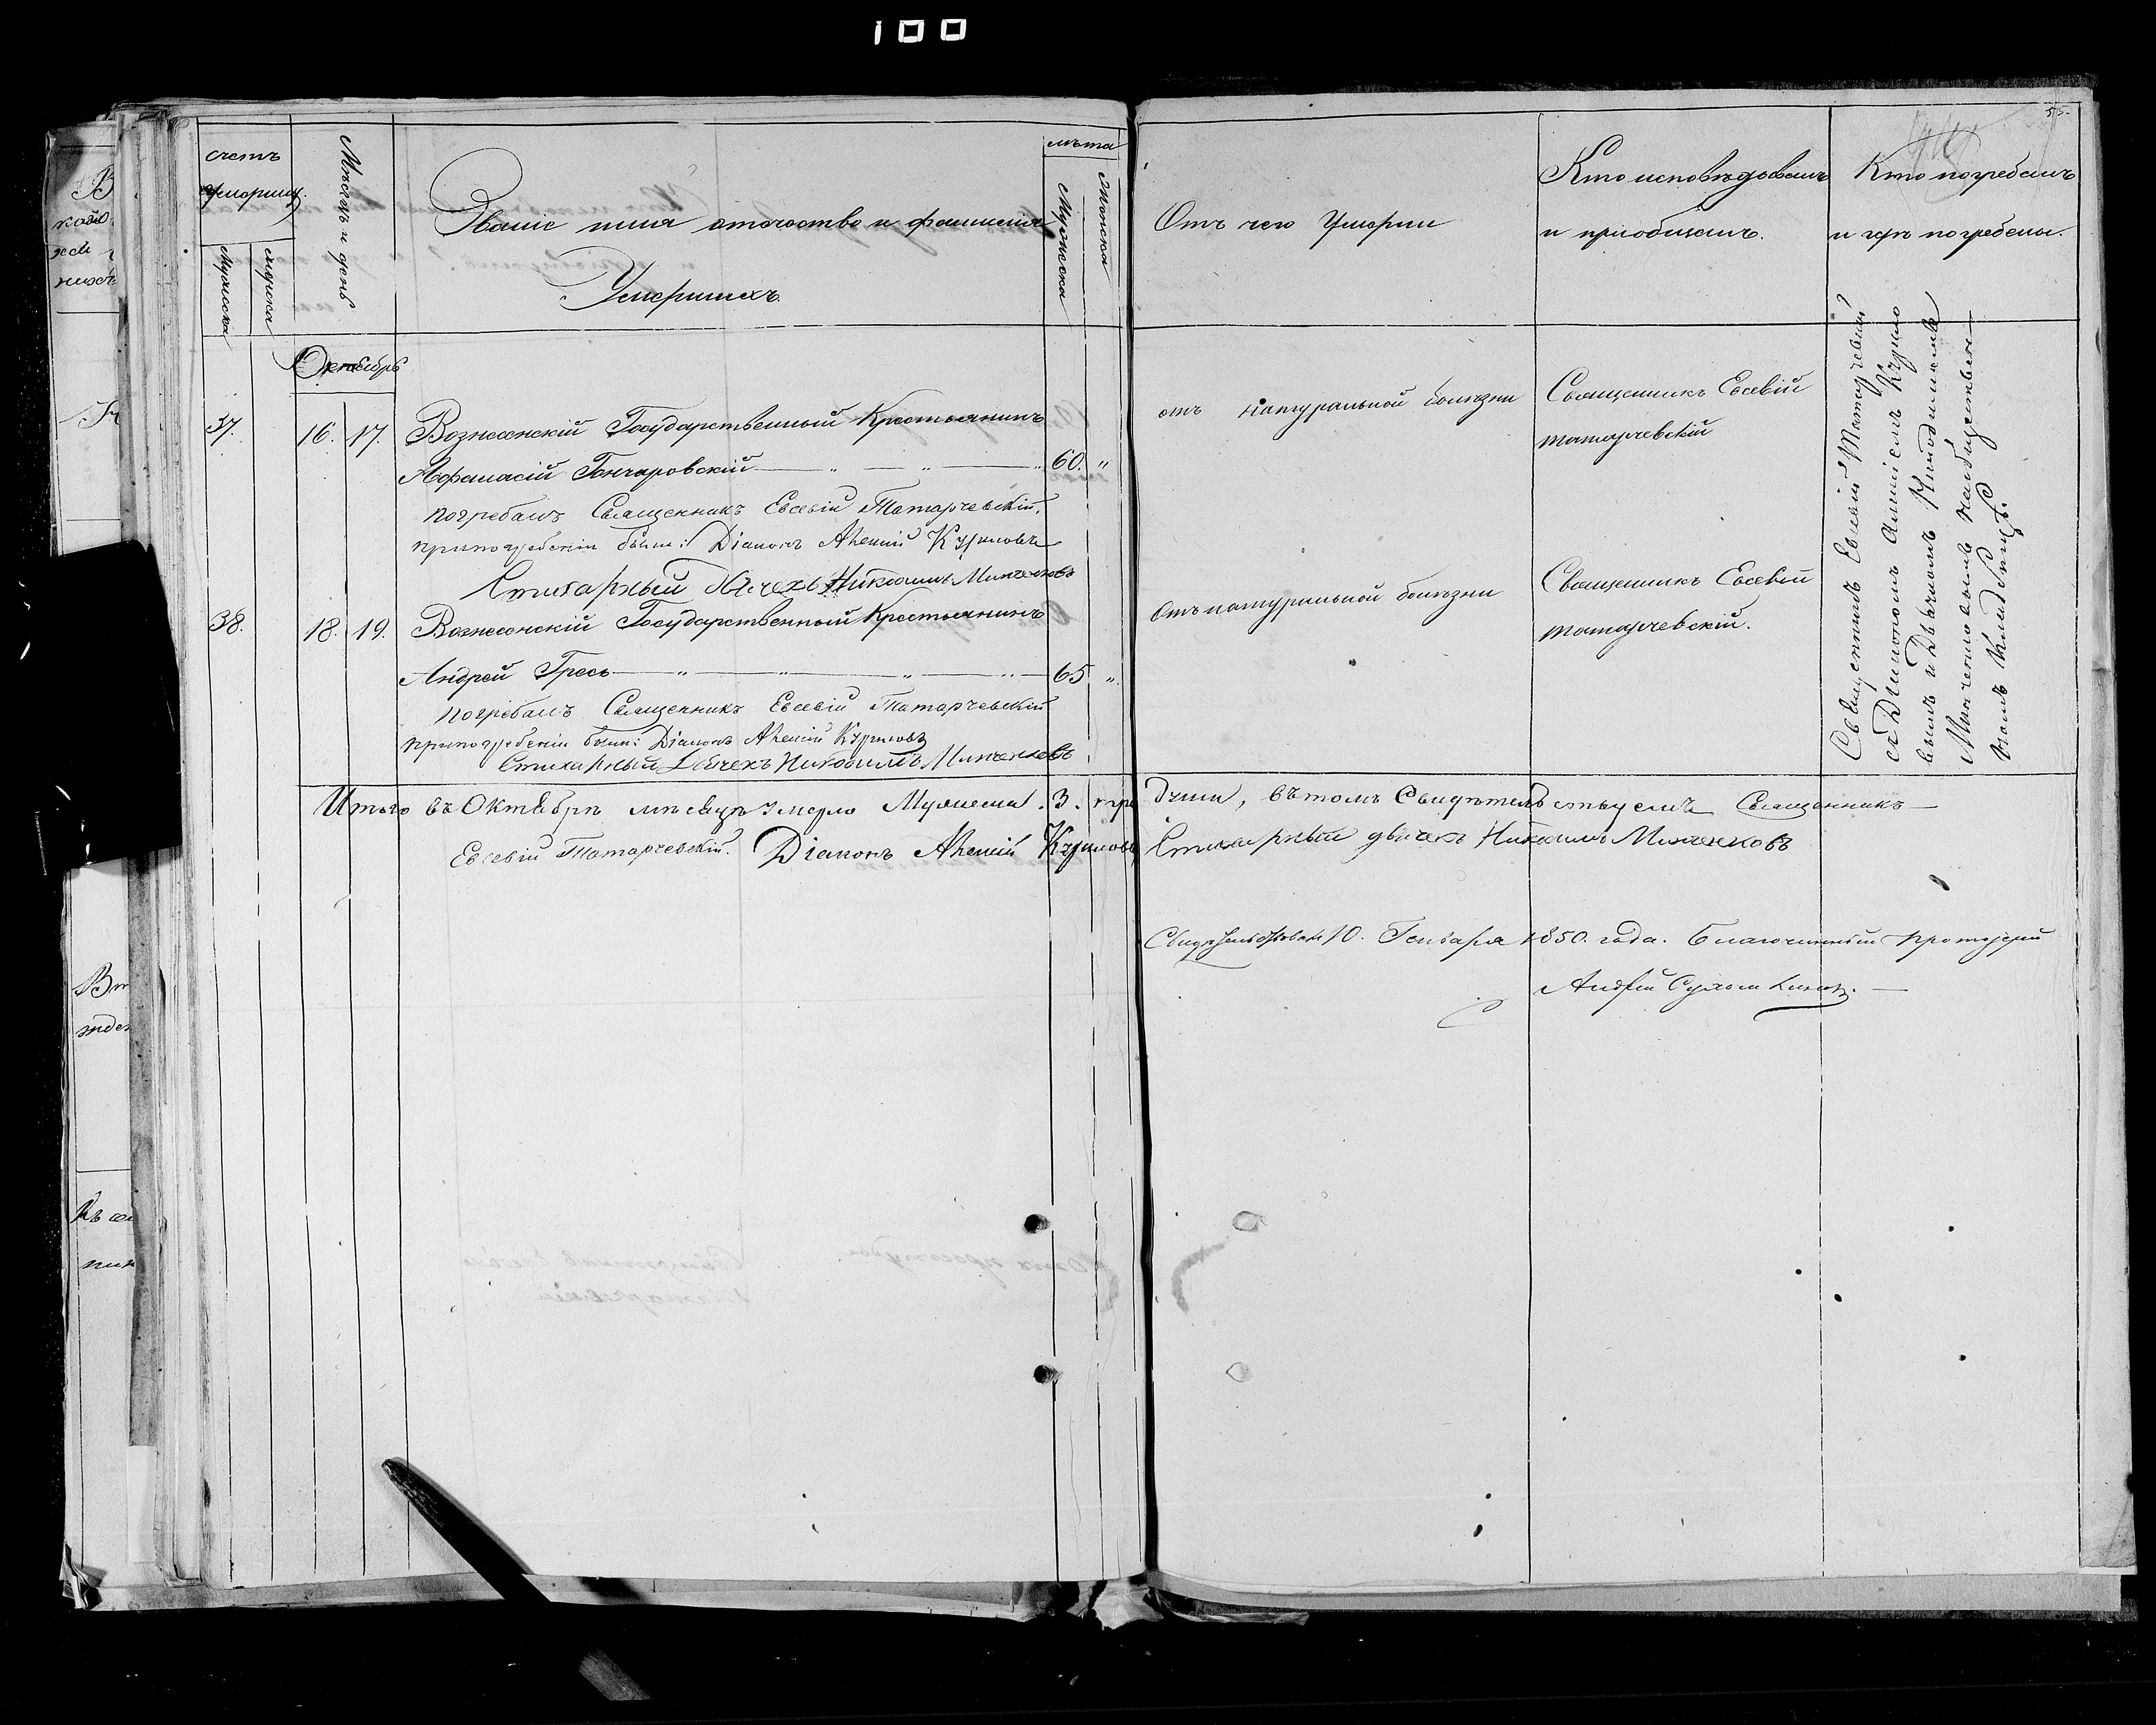 100
55.
счетъ умерших.
Мужеска
женска
Мѣсяцъ и день
Званіе имя отечество и фамилія
Умершихъ.
лѣта
Мужеска
Женска
Отъ чего Умерли
Кто исповѣдовалъ
и пріобщалъ.
Кто погребалъ
и гдѣ погребены.
Октябрь
37. 16. 17. Вознесенскій Государственный Крестьянинъ
Афанасій Гончаровскій 60. "
отъ натуральной болѣзни
Священникъ Евсевій
Татарчевскій
погребалъ Священникъ Евсевій Татарчевскій,
припогребеніи были: Діаконъ Куриловъ
Стихарный Дьячекъ Никодимъ Минченковъ
38. 18. 19. Вознесенскій Государственный Крестьянинъ
Андрей Гресь 65 "
Отъ натуральной болѣзни
Священникъ Евсевій
Татарчевскій.
погребалъ Священникъ Евсевій Татарчевскій
припогребеніи были: Діаконъ Куриловъ
Стихарный Дьячекъ Никодимъ Минченковъ
Священникъ Евсевій Татарчевскій
съ Діакономъ Курило
вымъ и Дьячкомъ Никодимомъ
Минченковымъ наобщественномъ
Кладбищѣ
Итого въ Октябрѣ мѣсяцѣ умерло Мужеска. 3. три души, въ томъ Свидѣтельствуемъ Священникъ
Евсевій Татарчевскій. Діаконъ Куриловъ Стихарный дьячекъ Никодимъ Минченковъ
Свидѣтельствовалъ 10. Генваря 1850. года. Благочинный протоіерей
Андрей